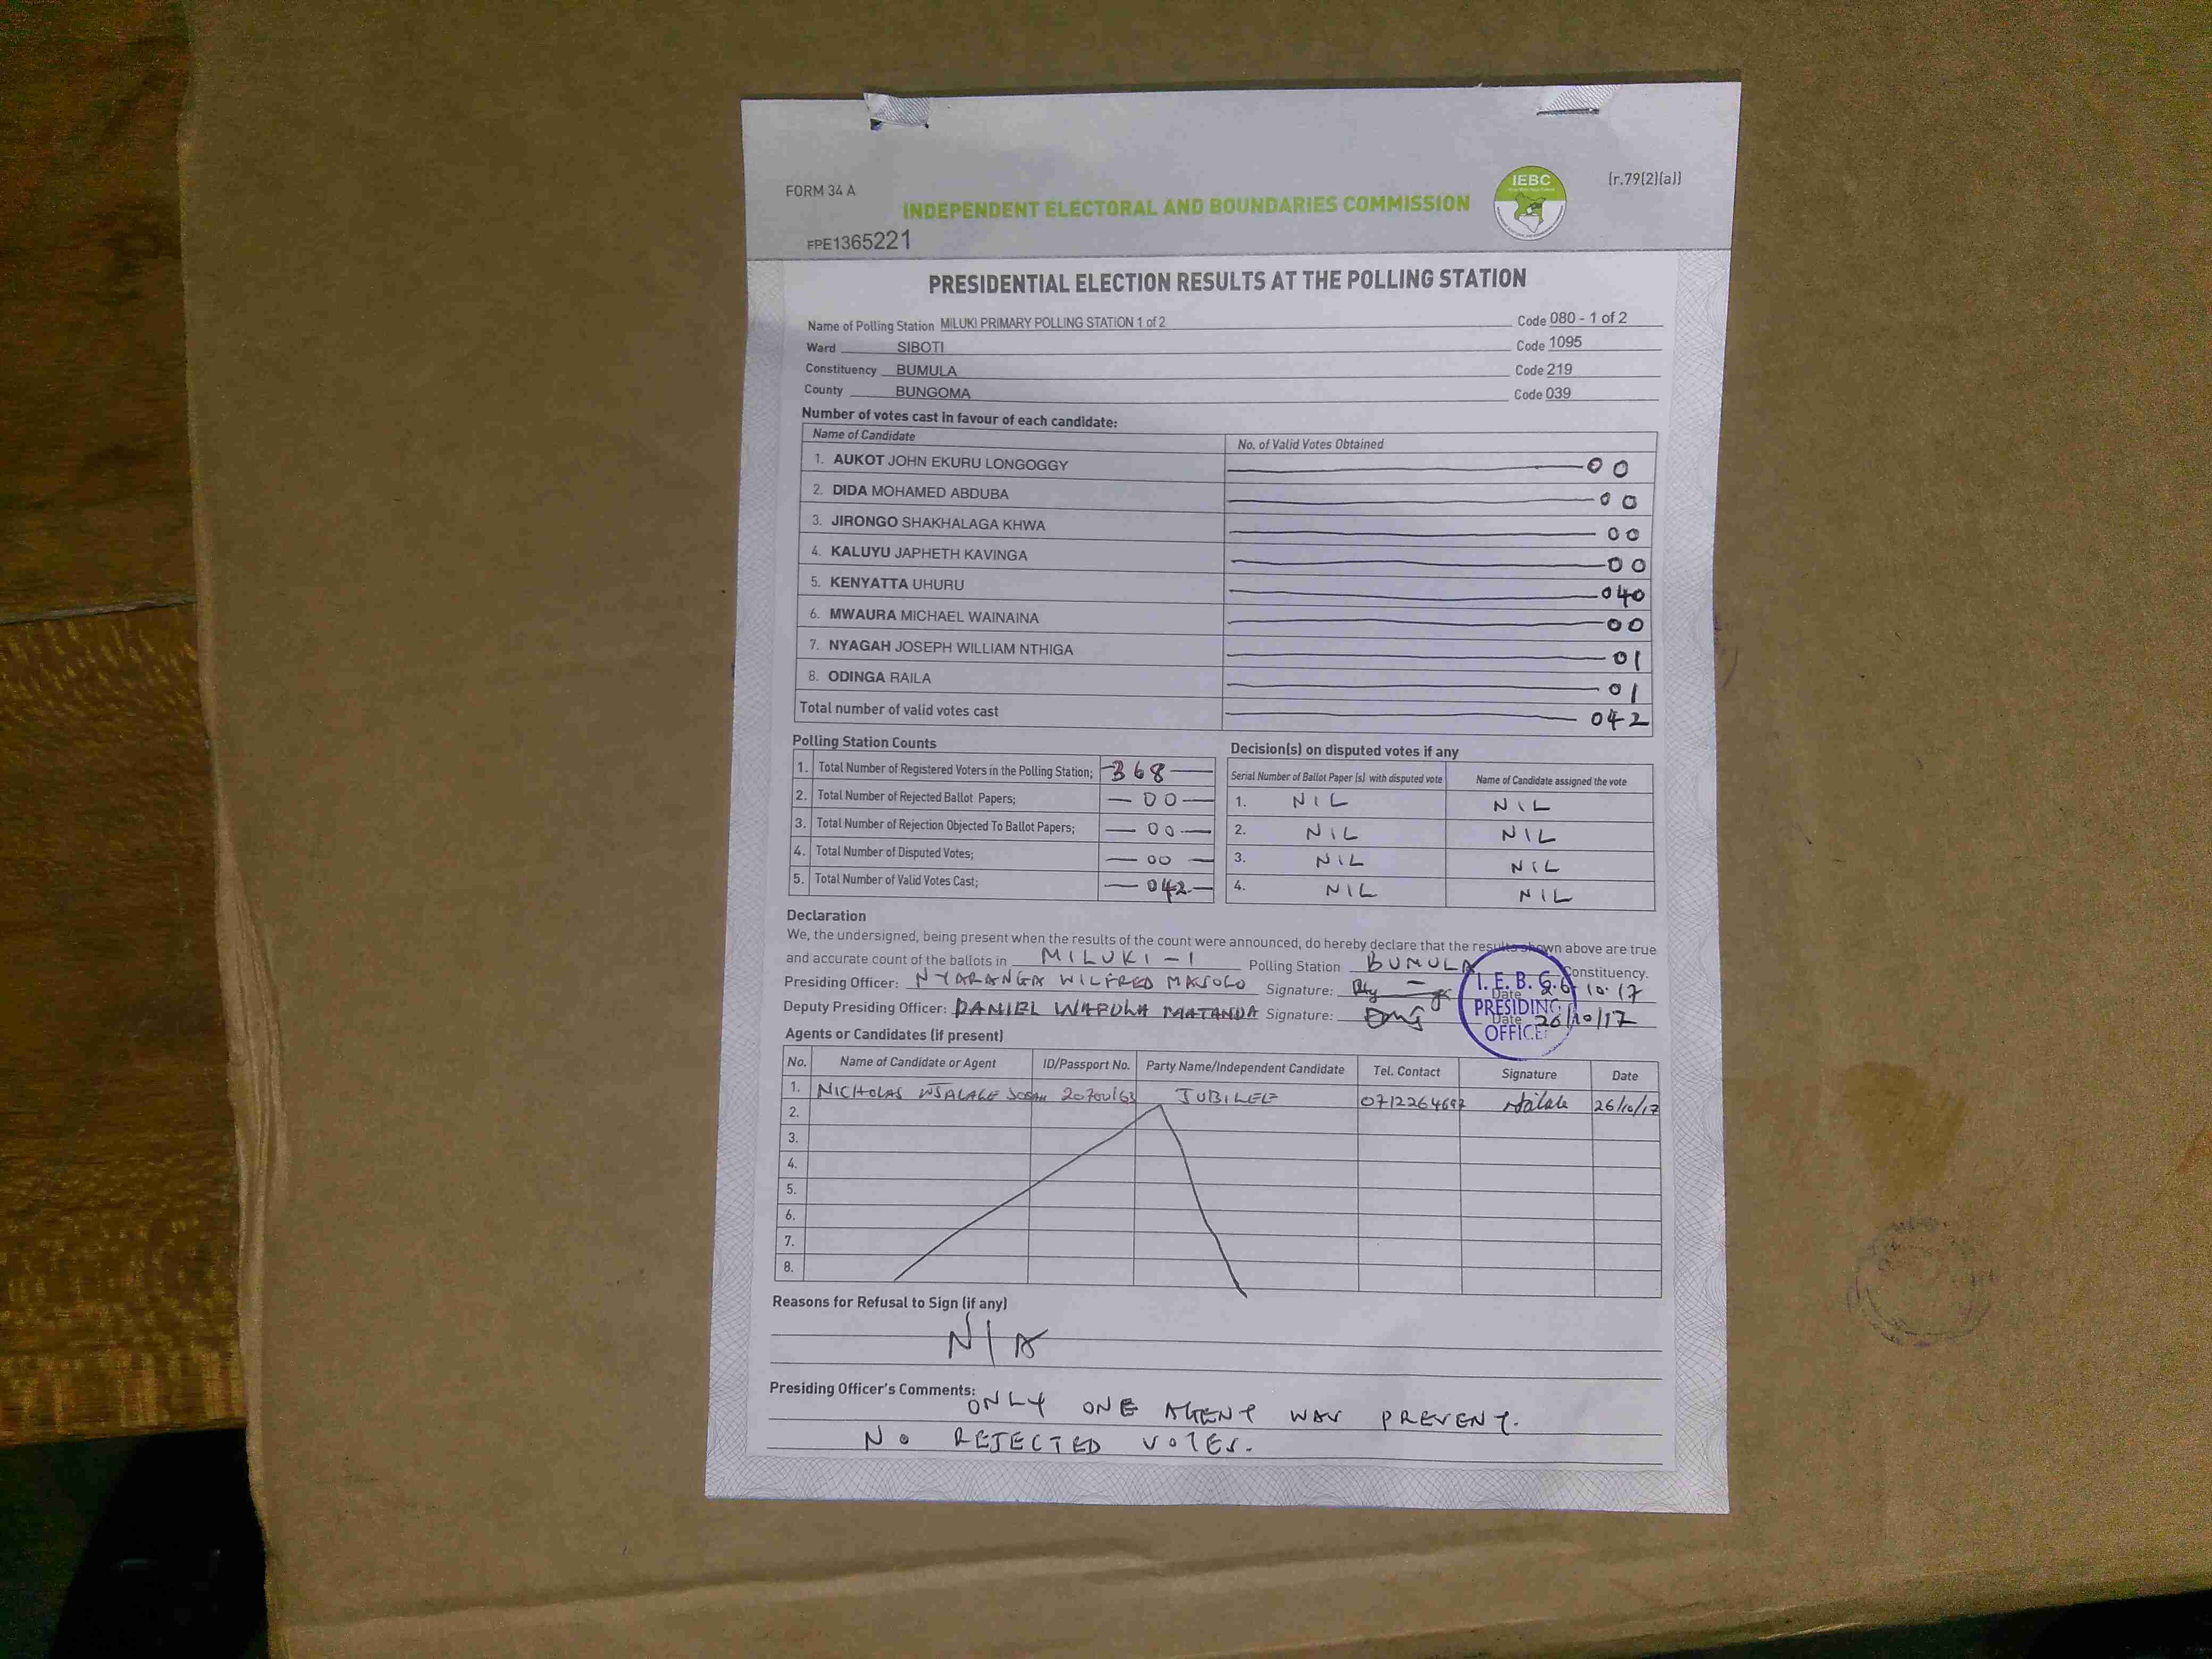 FORM 34 A
IEBC
(r.79(2)(a))
INDEPENDENT ELECTORAL AND BOUNDARIES COMMISSION
FPE1365221
PRESIDENTIAL ELECTION RESULTS AT THE POLLING STATION
Name of Polling Station MILUKI PRIMARY POLLING STATION 1 of 2 Code 080 - 1 of 2
Ward SIBOTI Code 1095
Constituency BUMULA Code 219
County BUNGOMA Code 039
Number of votes cast in favour of each candidate:
Name of Candidate No. of Valid Votes Obtained
1. AUKOT JOHN EKURU LONGOGGY 00
2. DIDA MOHAMED ABDUBA 00
3. JIRONGO SHAKHALAGA KHWA 00
4. KALUYU JAPHETH KAVINGA 00
5. KENYATTA UHURU 040
6. MWAURA MICHAEL WAINAINA 00
7. NYAGAH JOSEPH WILLIAM NTHIGA 01
8. ODINGA RAILA 01
Total number of valid votes cast 042
Polling Station Counts
1. Total Number of Registered Voters in the Polling Station; 368
2. Total Number of Rejected Ballot Papers; 00
3. Total Number of Rejection Objected To Ballot Papers; 00
4. Total Number of Disputed Votes; 00
5. Total Number of Valid Votes Cast; 042
Decision(s) on disputed votes if any
Serial Number of Ballot Paper (s) with disputed vote Name of Candidate assigned the vote
1. NIL NIL
2. NIL NIL
3. NIL NIL
4. NIL NIL
Declaration
We, the undersigned, being present when the results of the count were announced, do hereby declare that the results shown above are true
and accurate count of the ballots in MILUKI - 1 Polling Station BUMULA Constituency.
Presiding Officer: NYARANGA WILFRED MASOLO Signature: Date 26.10.17
Deputy Presiding Officer: DANIEL WAFULA Signature: Date 26/10/17
I.E.B.C.
PRESIDING
OFFICER
Agents or Candidates (if present)
No. Name of Candidate or Agent ID/Passport No. Party Name/Independent Candidate Tel. Contact Signature Date
1. NICHOLAS JUBILEE 26/10/17
2.
3.
4.
5.
6.
7.
8.
Reasons for Refusal to Sign (if any)
N/A
Presiding Officer's Comments: ONLY ONE AGENT WAS PRESENT.
NO REJECTED VOTES.